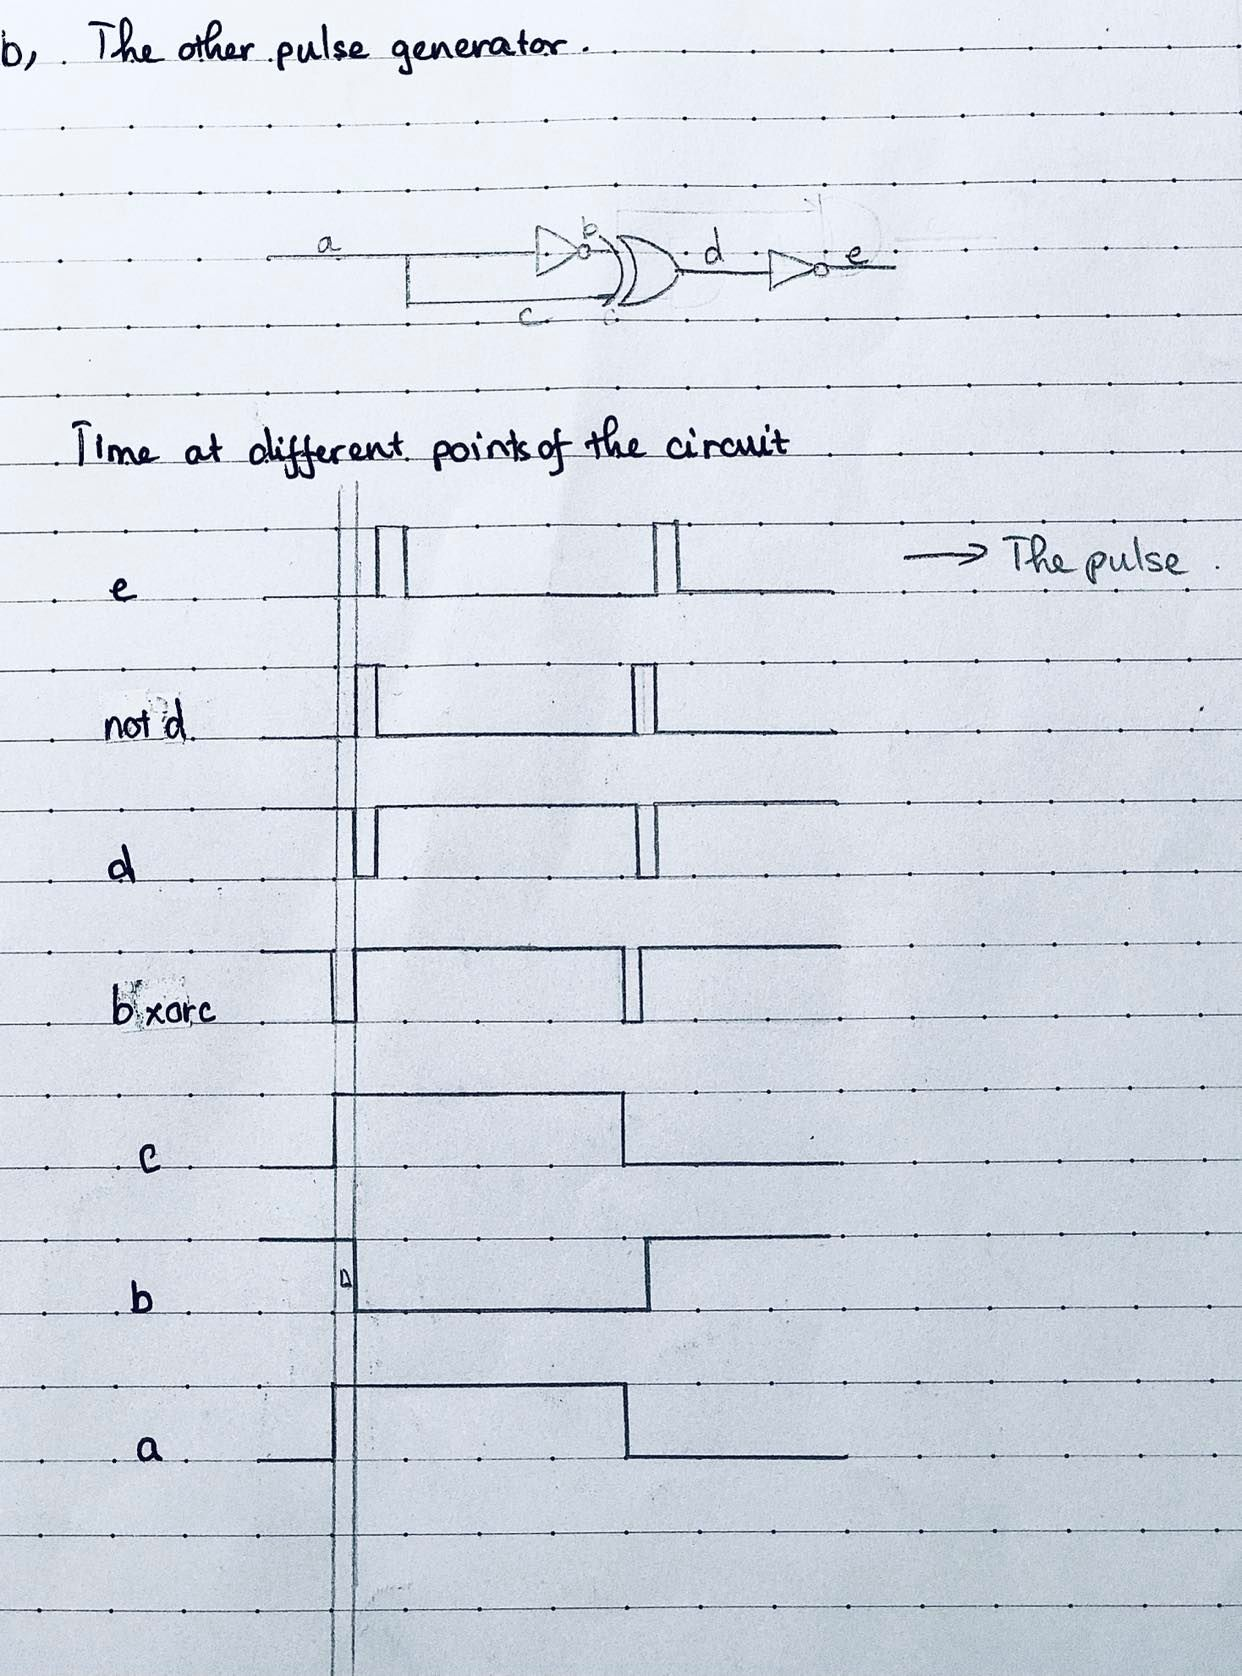 b, . The other pulse generator.
a
b
d
e
c
c
Time at different points of the circuit
e
→ The pulse.
not d
d
b xor c
c
b
Δ
a